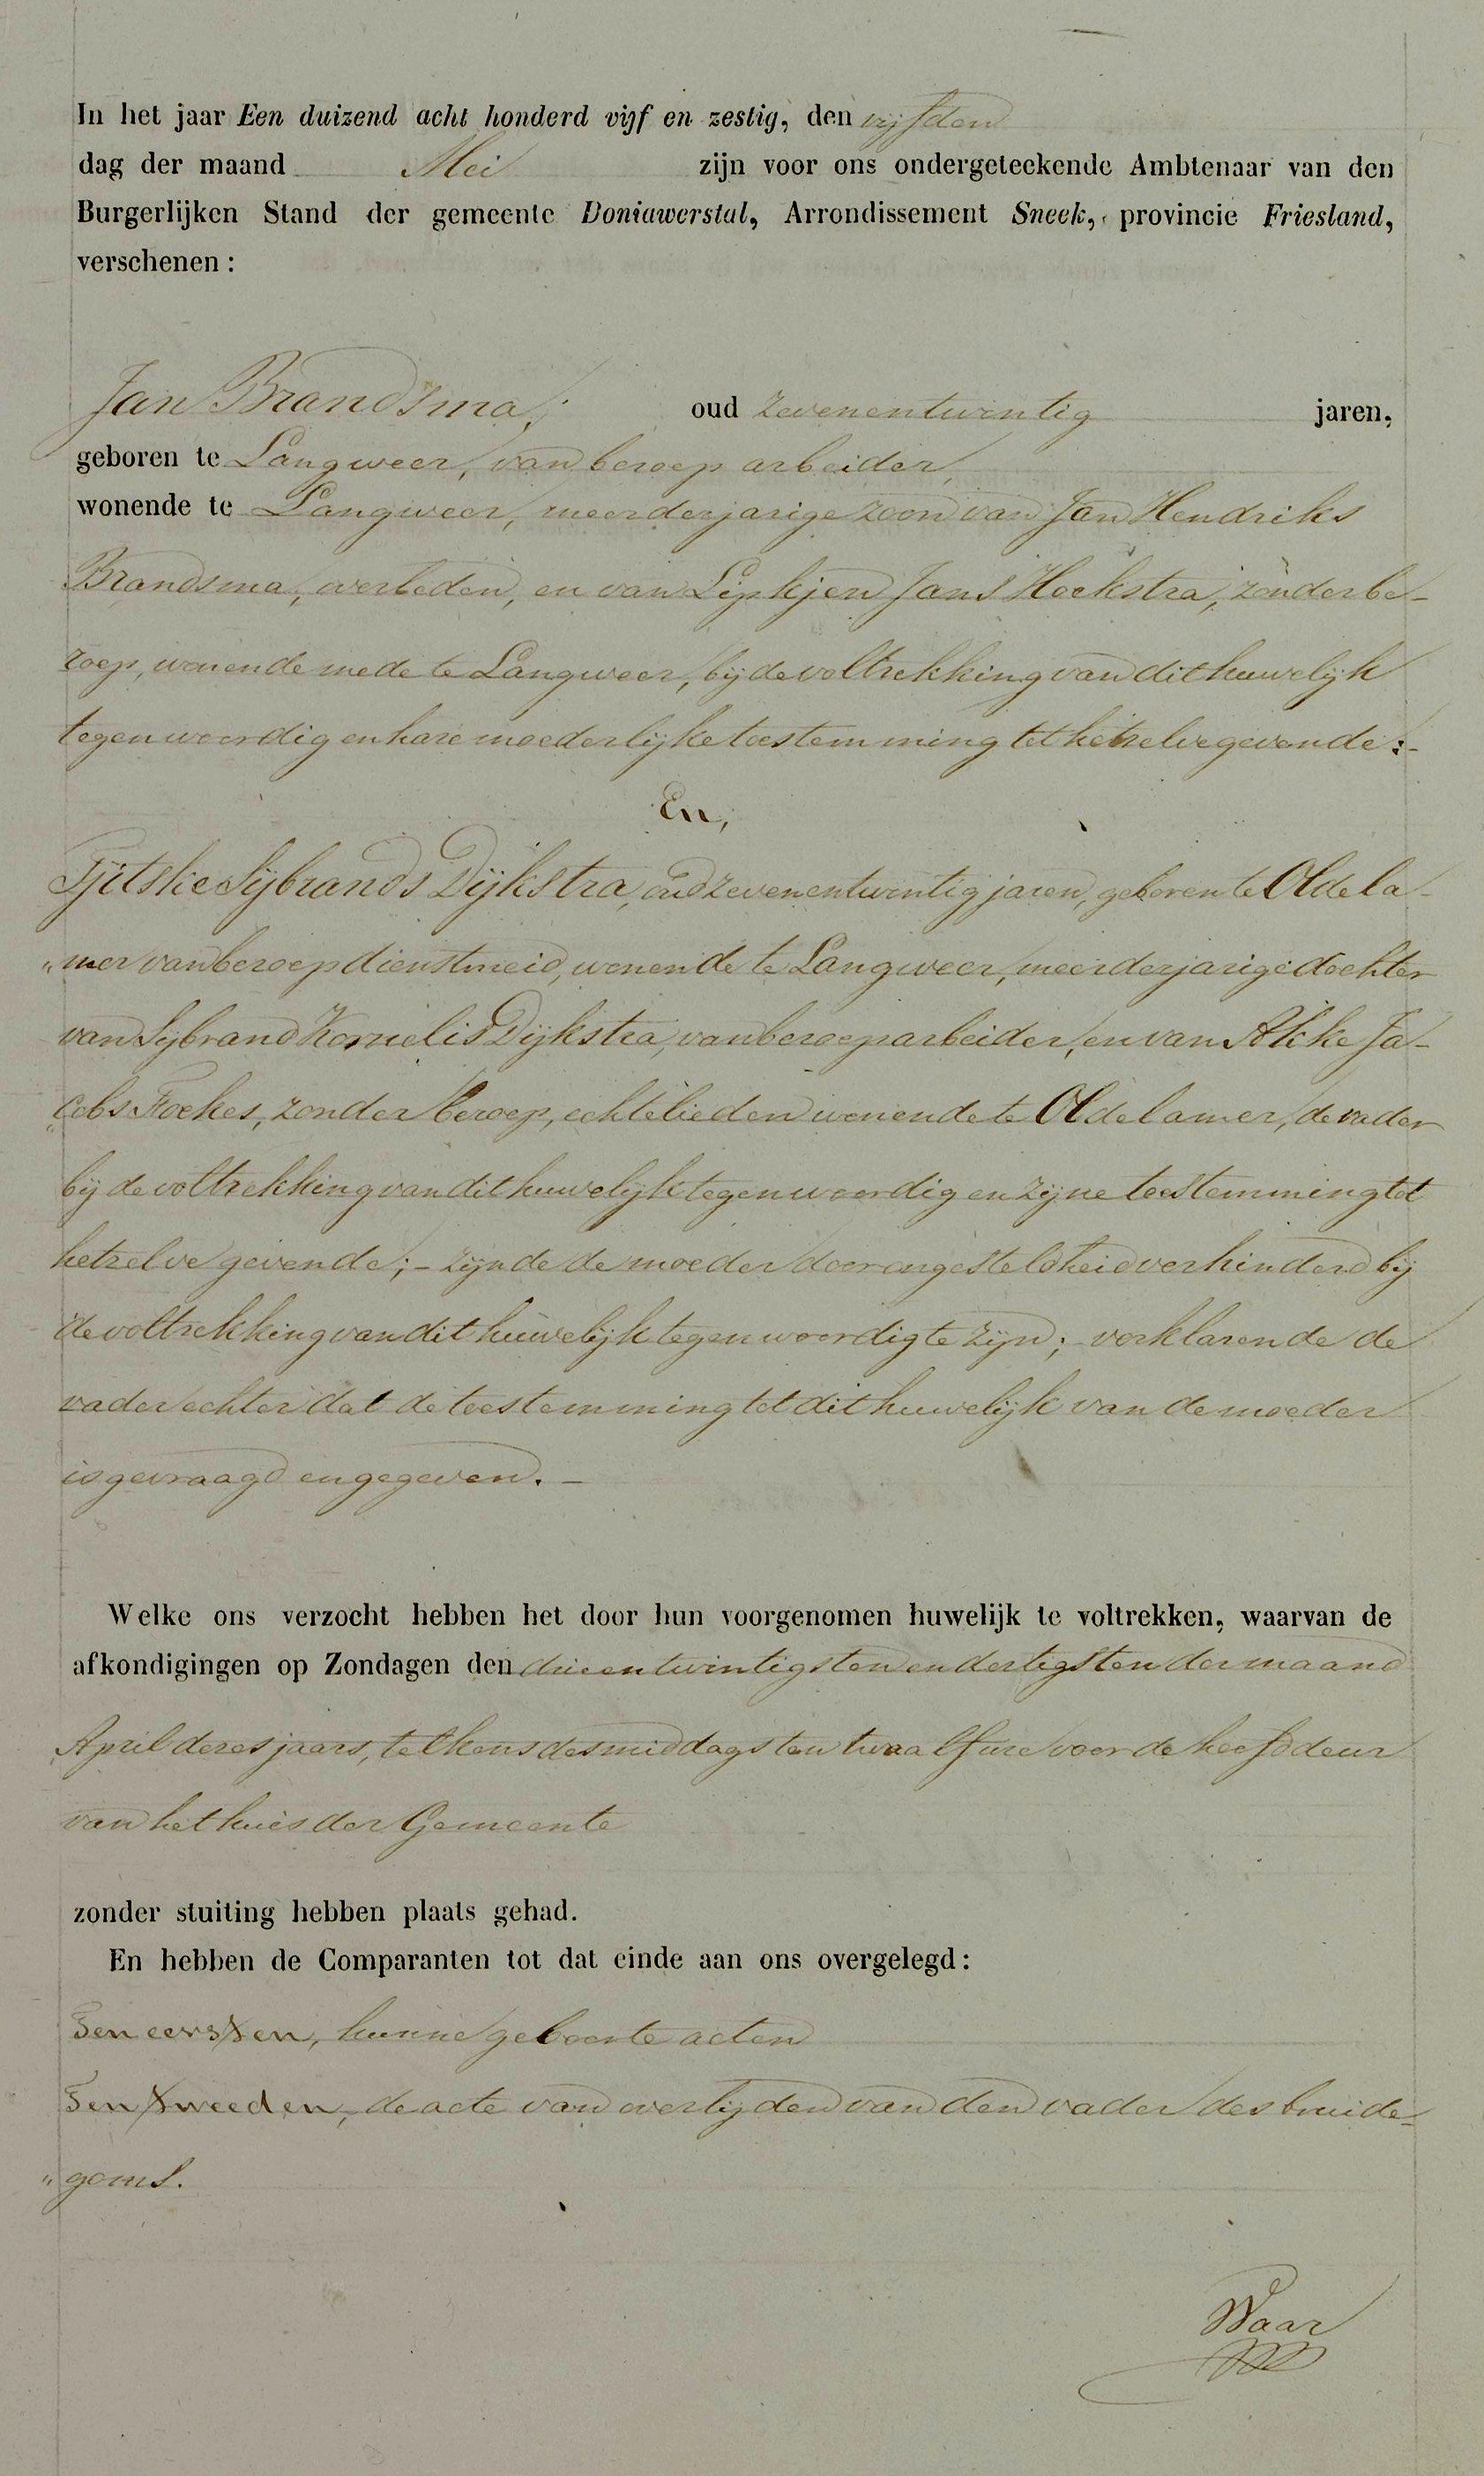 In het jaar Een duizend acht honderd vijf en zestig, den vijfden
dag der maand Mei zijn voor ons ondergeteekende Ambtenaar van den
Burgerlijken Stand der gemeente Doniawerstal, Arrondissement Sneek, provincie Friesland,
verschenen:
Jan Brandsma; oud zevenentwintig jaren,
geboren te Langweer, van beroep arbeider,
wonende te Langweer, meerderjarige zoon van Jan Hendriks
Brandsma, overleden, en van Lipkjen Jans Hoekstra, zonder be-
roep, wonende mede te Langweer, bij de voltrekking van dit huwelijk
tegenwoordig en hare moederlijke toestemming tot hetzelve gevende;-
En,
Tjitske Sijbrands Dijkstra, oud zevenentwintig jaren, geboren te Oldela-
"mer van beroep dienstmeid, wonende te Langweer, meerderjarige dochter
van Sijbrand Kornelis Dijkstra, van beroep arbeider, en van Akke Ja-
"cobs Fockes, zonder beroep, echtelieden wonende te Oldelamer, de vader
bij de voltrekking van dit huwelijk tegenwoordig en zijne toestemming tot
hetzelve gevende; - zijnde de moeder door ongesteldheid verhinderd bij
de voltrekking van dit huwelijk tegenwoordig te zijn; verklarende de
vader echter dat de toestemming tot dit huwelijk van de moeder
is gevraagd en gegeven. -
Welke ons verzocht hebben het door hun voorgenomen huwelijk te voltrekken, waarvan de
afkondigingen op Zondagen den drieentwintigsten en dertigsten der maand
April dezes jaars, telkens des middags ten twaalf ure voor de hoofddeur
van het huis der Gemeente
zonder stuiting hebben plaats gehad.
En hebben de Comparanten tot dat einde aan ons overgelegd:
Ten eersten, hunne geboorte acten
Ten tweeden, de acte van overlijden van den vader des bruide-
"goms.
Waar